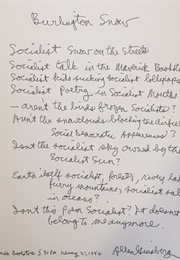 Burlington Snow
Socialist Snow on the Streets
Socialist talk in the Maverick Bookstore
Socialist kids sucking socialist lollipops
Socialist Poetry in Socialist Mouths
— aren't the birds frozen Socialists?
Aren't the snowclouds blocking the airfield
Social Democratic Appearances?
Isn't the socialist sky owned by the
Socialist Sun?
Earth itself socialist, forests, rivers, lakes
furry mountains, socialist salt
in oceans?
Isn't this Poem Socialist? It doesn't
belong to me anymore.
Bookstore
Allen Ginsberg